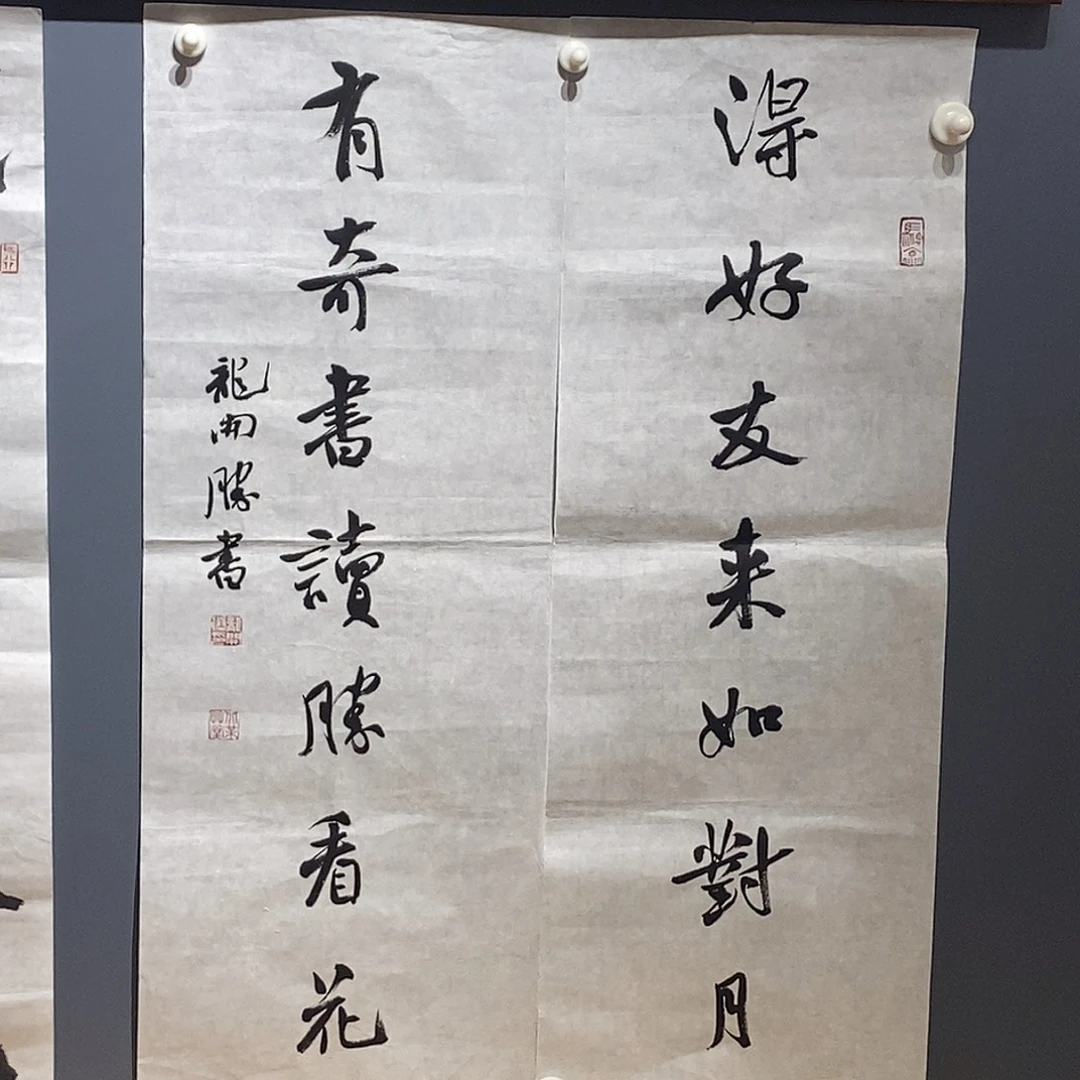 得好友来如對月
有奇書讀勝看花
龍開勝書